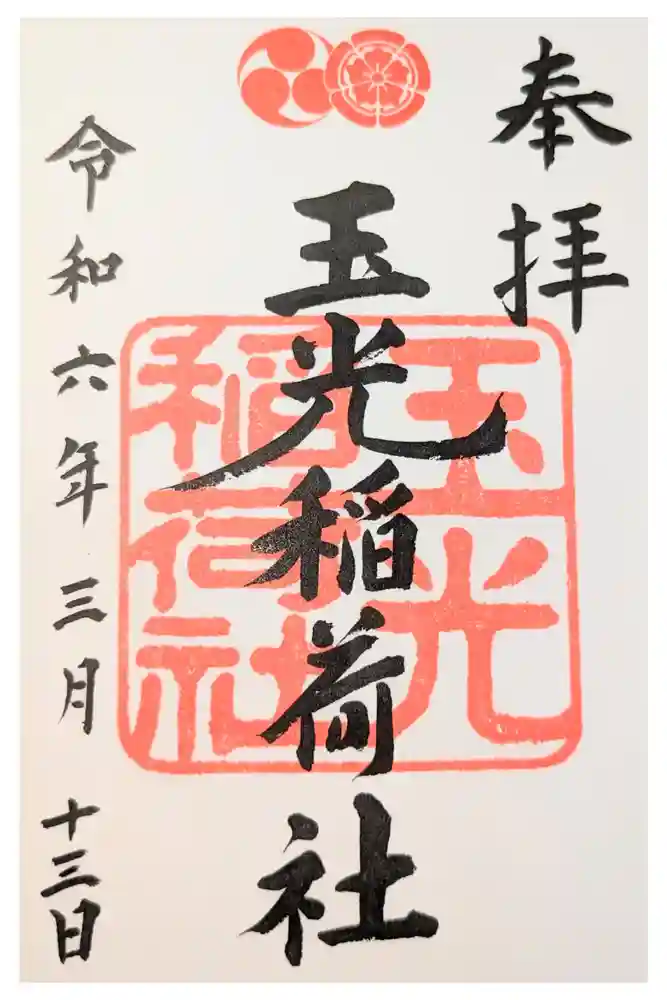 奉拝
玉光稲荷社
玉光稲荷社
令和六年三月十三日